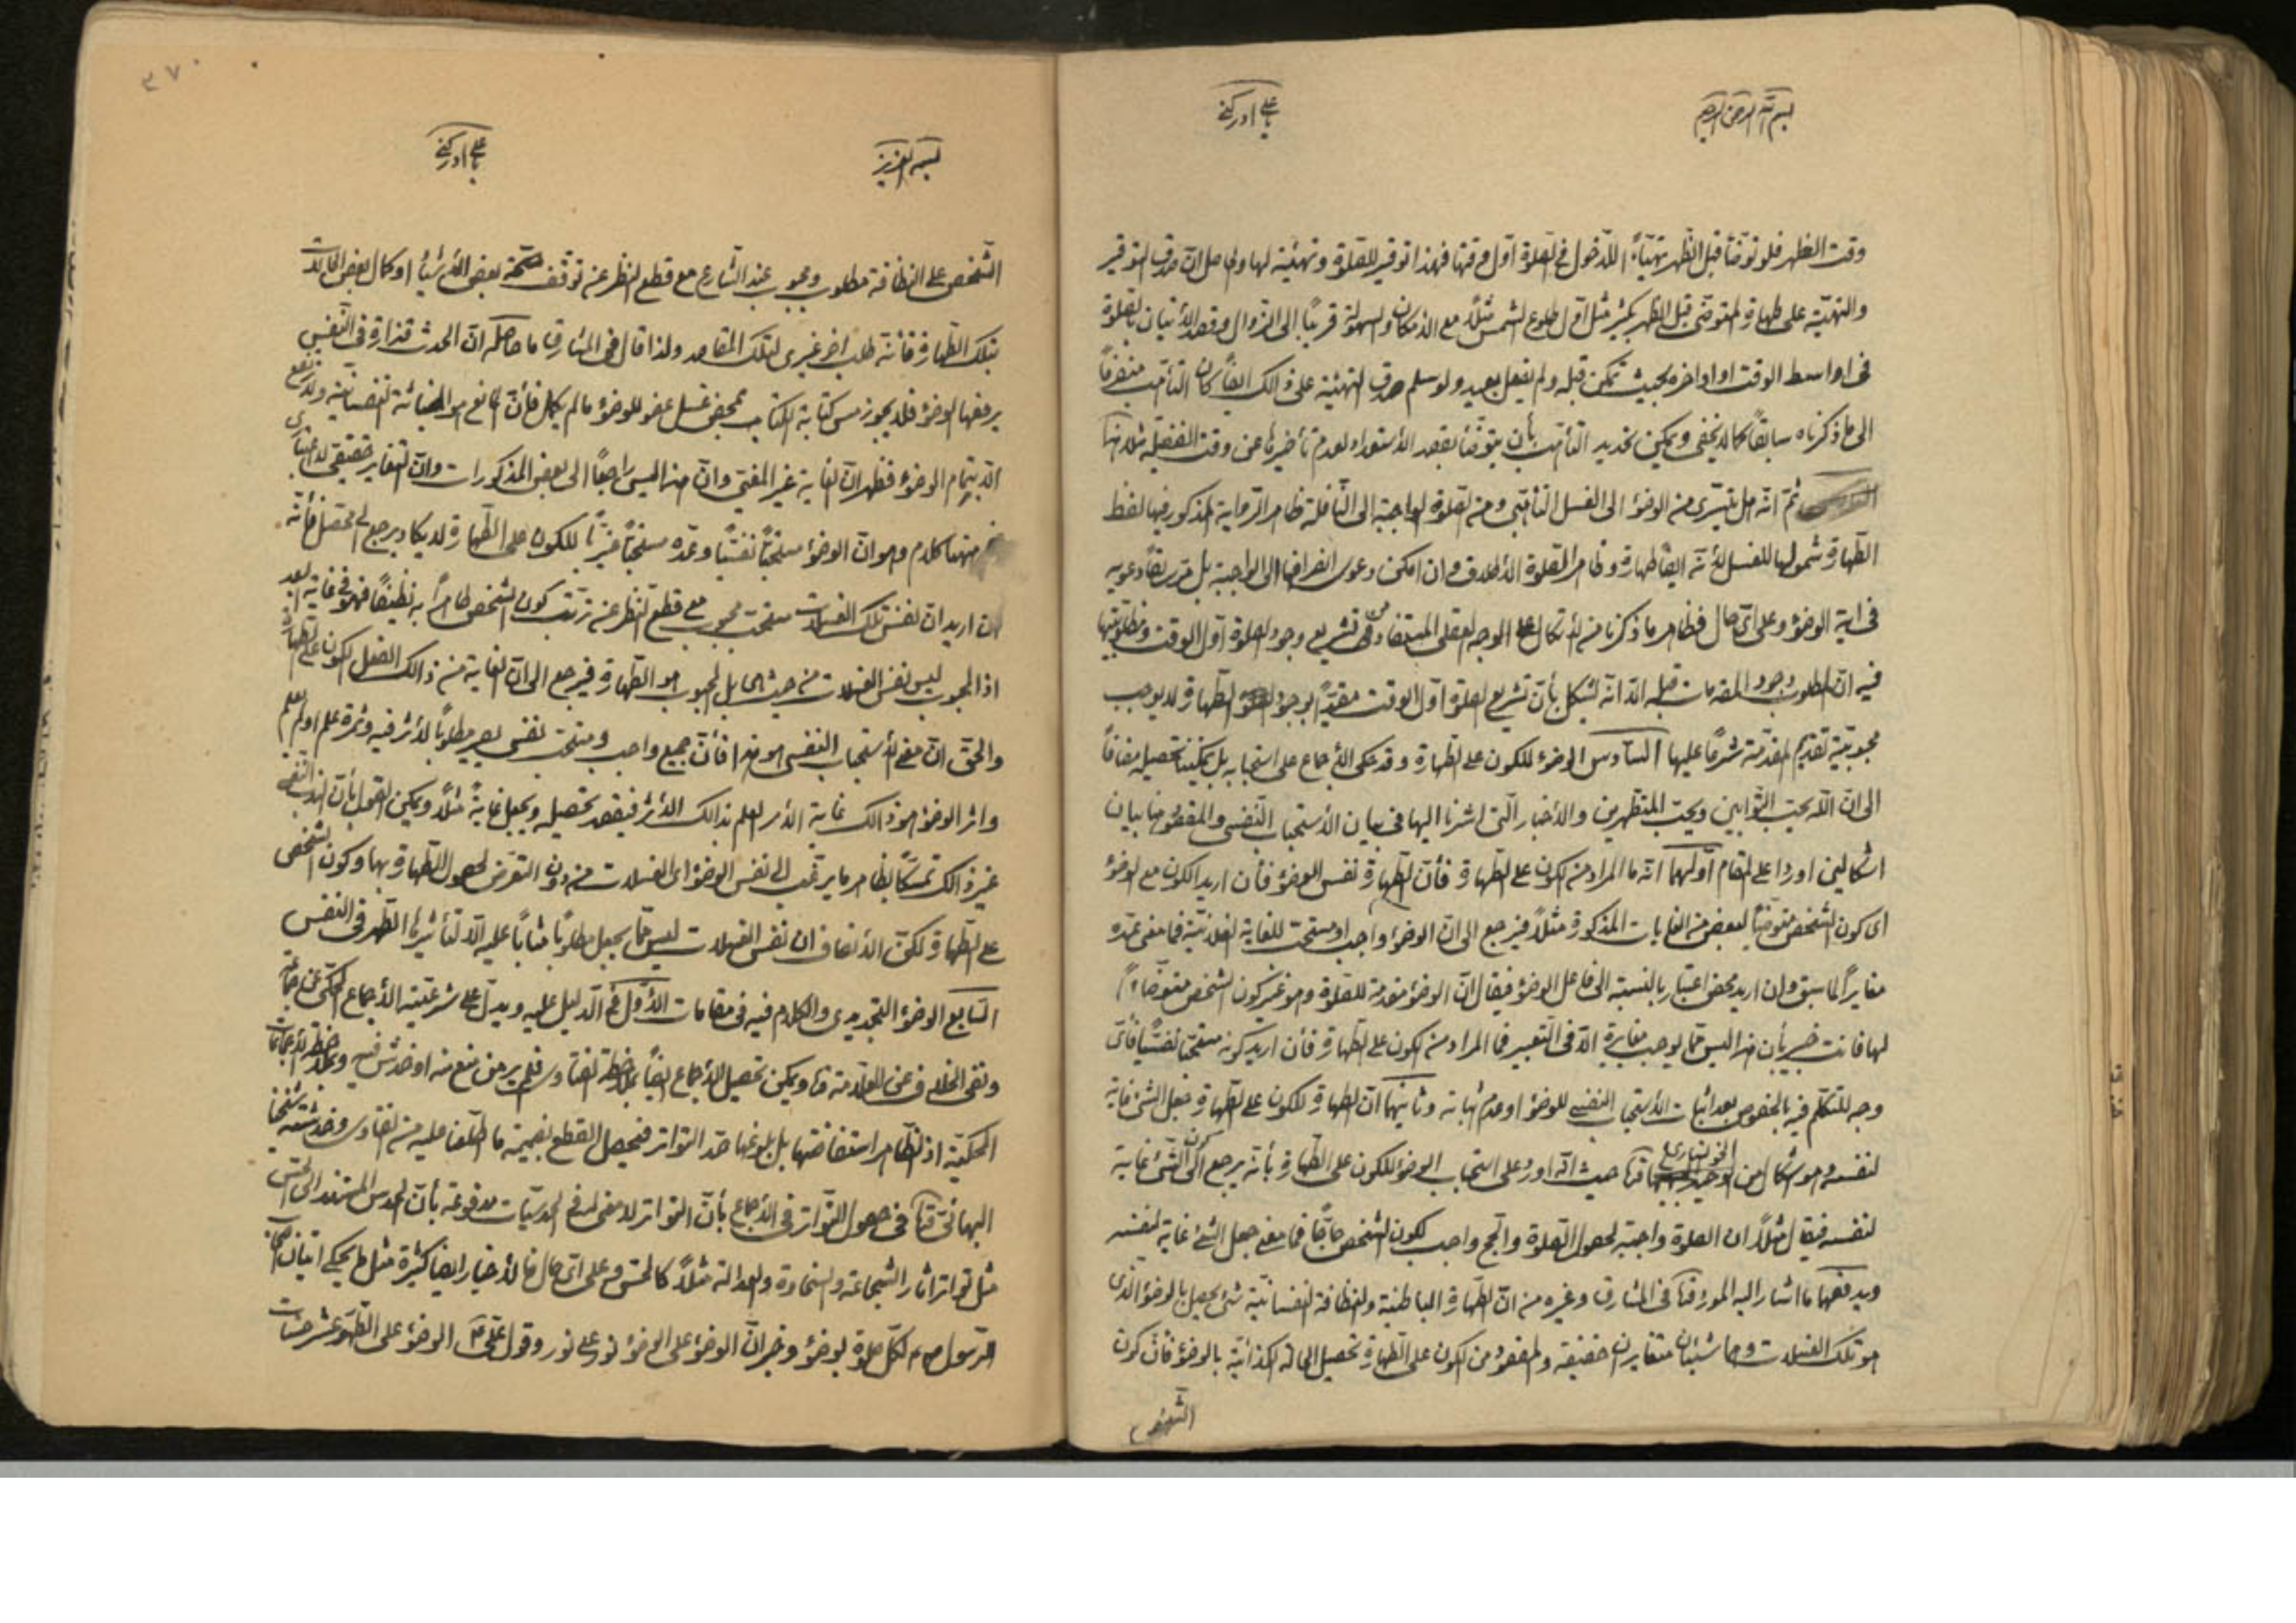 بسم الله الرحمن الرحيم
يا علي ادركني
وقت الظهر فلو توضأ قبل الظهر تهيّأً للدخول فى الصلوة اول وقتها فهذا توقير للصلوة وتهيئة لها والحاصل ان صدق التوقير
والتهيّة على طهارة المتوضى قبل الظهر بكثير مثل اول طلوع الشمس مثلاً مع الامكان والسهولة قريباً الى الزوال وقصد الاتيان بالصلوة
فى اواسط الوقت او اواخره بحيث تمكن قبله ولم يفعل بعيد ولو سلم صدق التهيئة على ذالك ايضاً كان التأهب منصرفاً
الى ما ذكرناه سابقاً كما لا يخفى ويمكن تحديد التأهب بأن يتوضأ بقصد الاستعداد لعدم تأخيرها عن وقت الفضيلة مثلا
ثمّ انّه هل يتسرى من الوضؤ الى الغسل التأهبى ومن الصلوة الواجبة الى النافلة ظاهر الرواية المذكور فيها لفظ
الطهارة شمولها للغسل لأنّه ايضاً طهارة وظاهر الصلوة الاطلاق وان امكن دعوى انصرافها الى الواجبة بل
فى اية الوضؤ وعلى اىّ حال فظاهر ما ذكرنا من الأتكال على الوجه العقلى المستفاد من تشريع وجود الصلوة اول الوقت ومطلوبيتها
فيه ان المطلوب وجود المقدمات قبله الّا انّه يشكل بأن تشريع الصلوة اول الوقت مقيّداً بوجود الطهارة لا يوجب
محبوبيّة تقديم المقدّمة شرعًا عليها السادس الوضؤ للكون على الطهارة وقد حكى الأجماع على استحبابه بل يمكننا تحصيله مضافاً
الى انّ الله يحبّ التّوابين ويحبّ المتطهرين والأخبار الّتى اشرنا اليها فى بيان الأستحباب النّفسى والمقصود هنا بيان
اشكالين اوردا على المقام اوّلهما انّه ما المراد من الكون على الطهارة فأنّ الطهارة نفس الوضؤ فأن اريد الكون مع الوضؤ
اى كون الشخص متوضّياً لبعض من الغايات المذكورة مثلاً فيرجع الى انّ الوضؤ واجب او مستحب للغاية الفلانيّة فما معنى عدّه
مغايراً لما سبق وان اريد محض اعتبار بالنسبة الى فاعل الوضؤ فيقال انّ الوضؤ مقدمة للصلوة وهو غير كون الشخص متوضّاءً
لها فانت خبير بأن هذا ليس ممّا يوجب مغايرة الّا فى التعبير فما المراد من الكون على الطهارة فأن اريد كونه مستحباً نفسيّاً فأىّ
وجه للتكلّم فيه بالخصوص بعد اثبات الأستحباب النفسى للوضؤ او عدم اثباته وثانيهما انّ الطهارة للكون على الطهارة جعل الشئ غاية
لنفسه وهو اشكال من الخونسارى حيث انّه اورد على استحباب الوضؤ للكون على الطهارة بأنّه يرجع الى كون الشئ غاية
لنفسه فيقال مثلاً ان الصلوة واجبة لحصول الصلوة والحج واجب لكون الشخص حاجّاً فما معنى جعل الشئ غاية لنفسه
ويدفعهما ما اشار اليه المورد فى المشارق وغيره من انّ الطهارة الباطنية والنظافة النفسانيّة شئ يحصل بالوضؤ الذى
هو تلك الغسلات وهما شيئان متغايران حقيقة والمقصود من الكون على الطهارة تحصيل الحالة الكذائيّة بالوضؤ فأن كون
الشخص
٣٧٠
بسمه العزيز
يا علي ادركني
الشخص على النظافة مطلوب ومحبوب عند الشارع مع قطع النظر عن توقف صحّة بعض الأشياء او كمال بعض الحالات
بتلك الطهارة فأنّه طلب اخر غيرى لتلك المقاصد ولذا قال فى المشارق ما حاصله انّ الحدث قذارة فى النّفس
يرفعها الوضؤ فلا يجوز مس كتابة الكتاب بمحض غسل عضو للوضؤ ما لم يكمل فأنّ المانع هو الخباثة النفسانيّة ولا ترتفع
الّا بتمام الوضؤ فظهر انّ الغاية غير المغيى وانّ هذا ليس راجعاً الى بعض المذكورات وانّ التغاير حقيقى لا اعتبارى
ههنا كلام وهو انّ الوضؤ مستحبّاً نفسيّاً وعدّه مستحبّاً غيريّاً للكون على الطهارة لا يكاد يرجع الى محصّل فأنّه
ان اريد ان نفس تلك الغسلات مستحب محبوب مع قطع النظر عن ترتب كون الشخص طاهراً به نظيفاً فهو فى غاية البعد
اذ المحبوب ليس نفس الغسلات من حيث هى بل المحبوب هو الطهارة فيرجع الى انّ الغاية من ذالك الفعل الكون على الطهارة
والحق انّ معنى الأستحباب النفسى هو هذا فأنّ جميع واجب ومستحبّ نفسى يصير مطلوباً لأثر فيه وثمرة علم او لم يعلم
واثر الوضؤ هو ذالك غاية الأمر العلم بذالك الأثر فيقصد تحصيله ويجعل غايةً مثلاً ويمكن القول بأنّ الندب النفسى
غير ذالك تمسكاً بظاهر ما يرغّب الى نفس الوضؤ اى الغسلات من دون التعرّض لحصول الطهارة بها وكون الشخص
على الطهارة لكنّ الأنصاف ان نفس الغسلات ليس ممّا يجعل مطلوباً مثاباً عليه الّا لتأثيرها التطهر فى النفس
السّابع الوضؤ التجديدى والكلام فيه فى مقامات الأوّل فى الدليل عليه ويدلّ على شرعيّته الأجماع المحكىّ عن جماعة
ونفى الخلاف عن العلّامة ويمكن تحصيل الأجماع ايضاً بملاحظة الفتاوى فلم ير من منع منه او خدش فيه وبملاحظة الأجماعات
المحكيّة اذ الظاهر استفاضتها بل بلوغها حدّ التواتر فيحصل القطع بضميمة ما اطلعنا عليه من الفتاوى وخدشة شيخنا
البهائى فى حصول التواتر فى الأجماع بأنّ التواتر لا معنى له فى الحدسيّات مدفوعة بأنّ الحدس المستند الى الحس
مثل تواتر اثار الشجاعة والسخاوة والعدالة مثلاً كالحسّ وعلى اىّ حال فالأخبار ايضاً كثيرة مثل ما يحكى اتيان
الرّسول ص لكلّ صلوة بوضؤ وخبر انّ الوضؤ على الوضؤ نور على نور وقول علىّ الوضؤ على الطّهر عشر حسنات